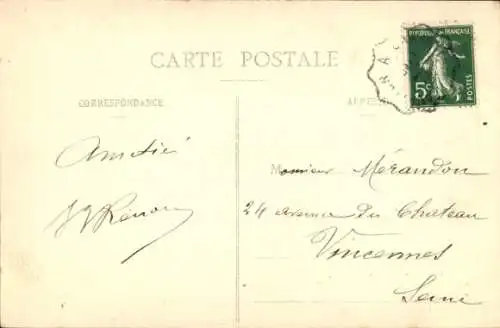 CARTE POSTALE
REPUBLIQUE FRANÇAISE
5c
POSTES
CORRESPONDANCE
ADRESSE
Amitié
Monsieur Mérandon
24 avenue du Chateau
Vincennes
Seine